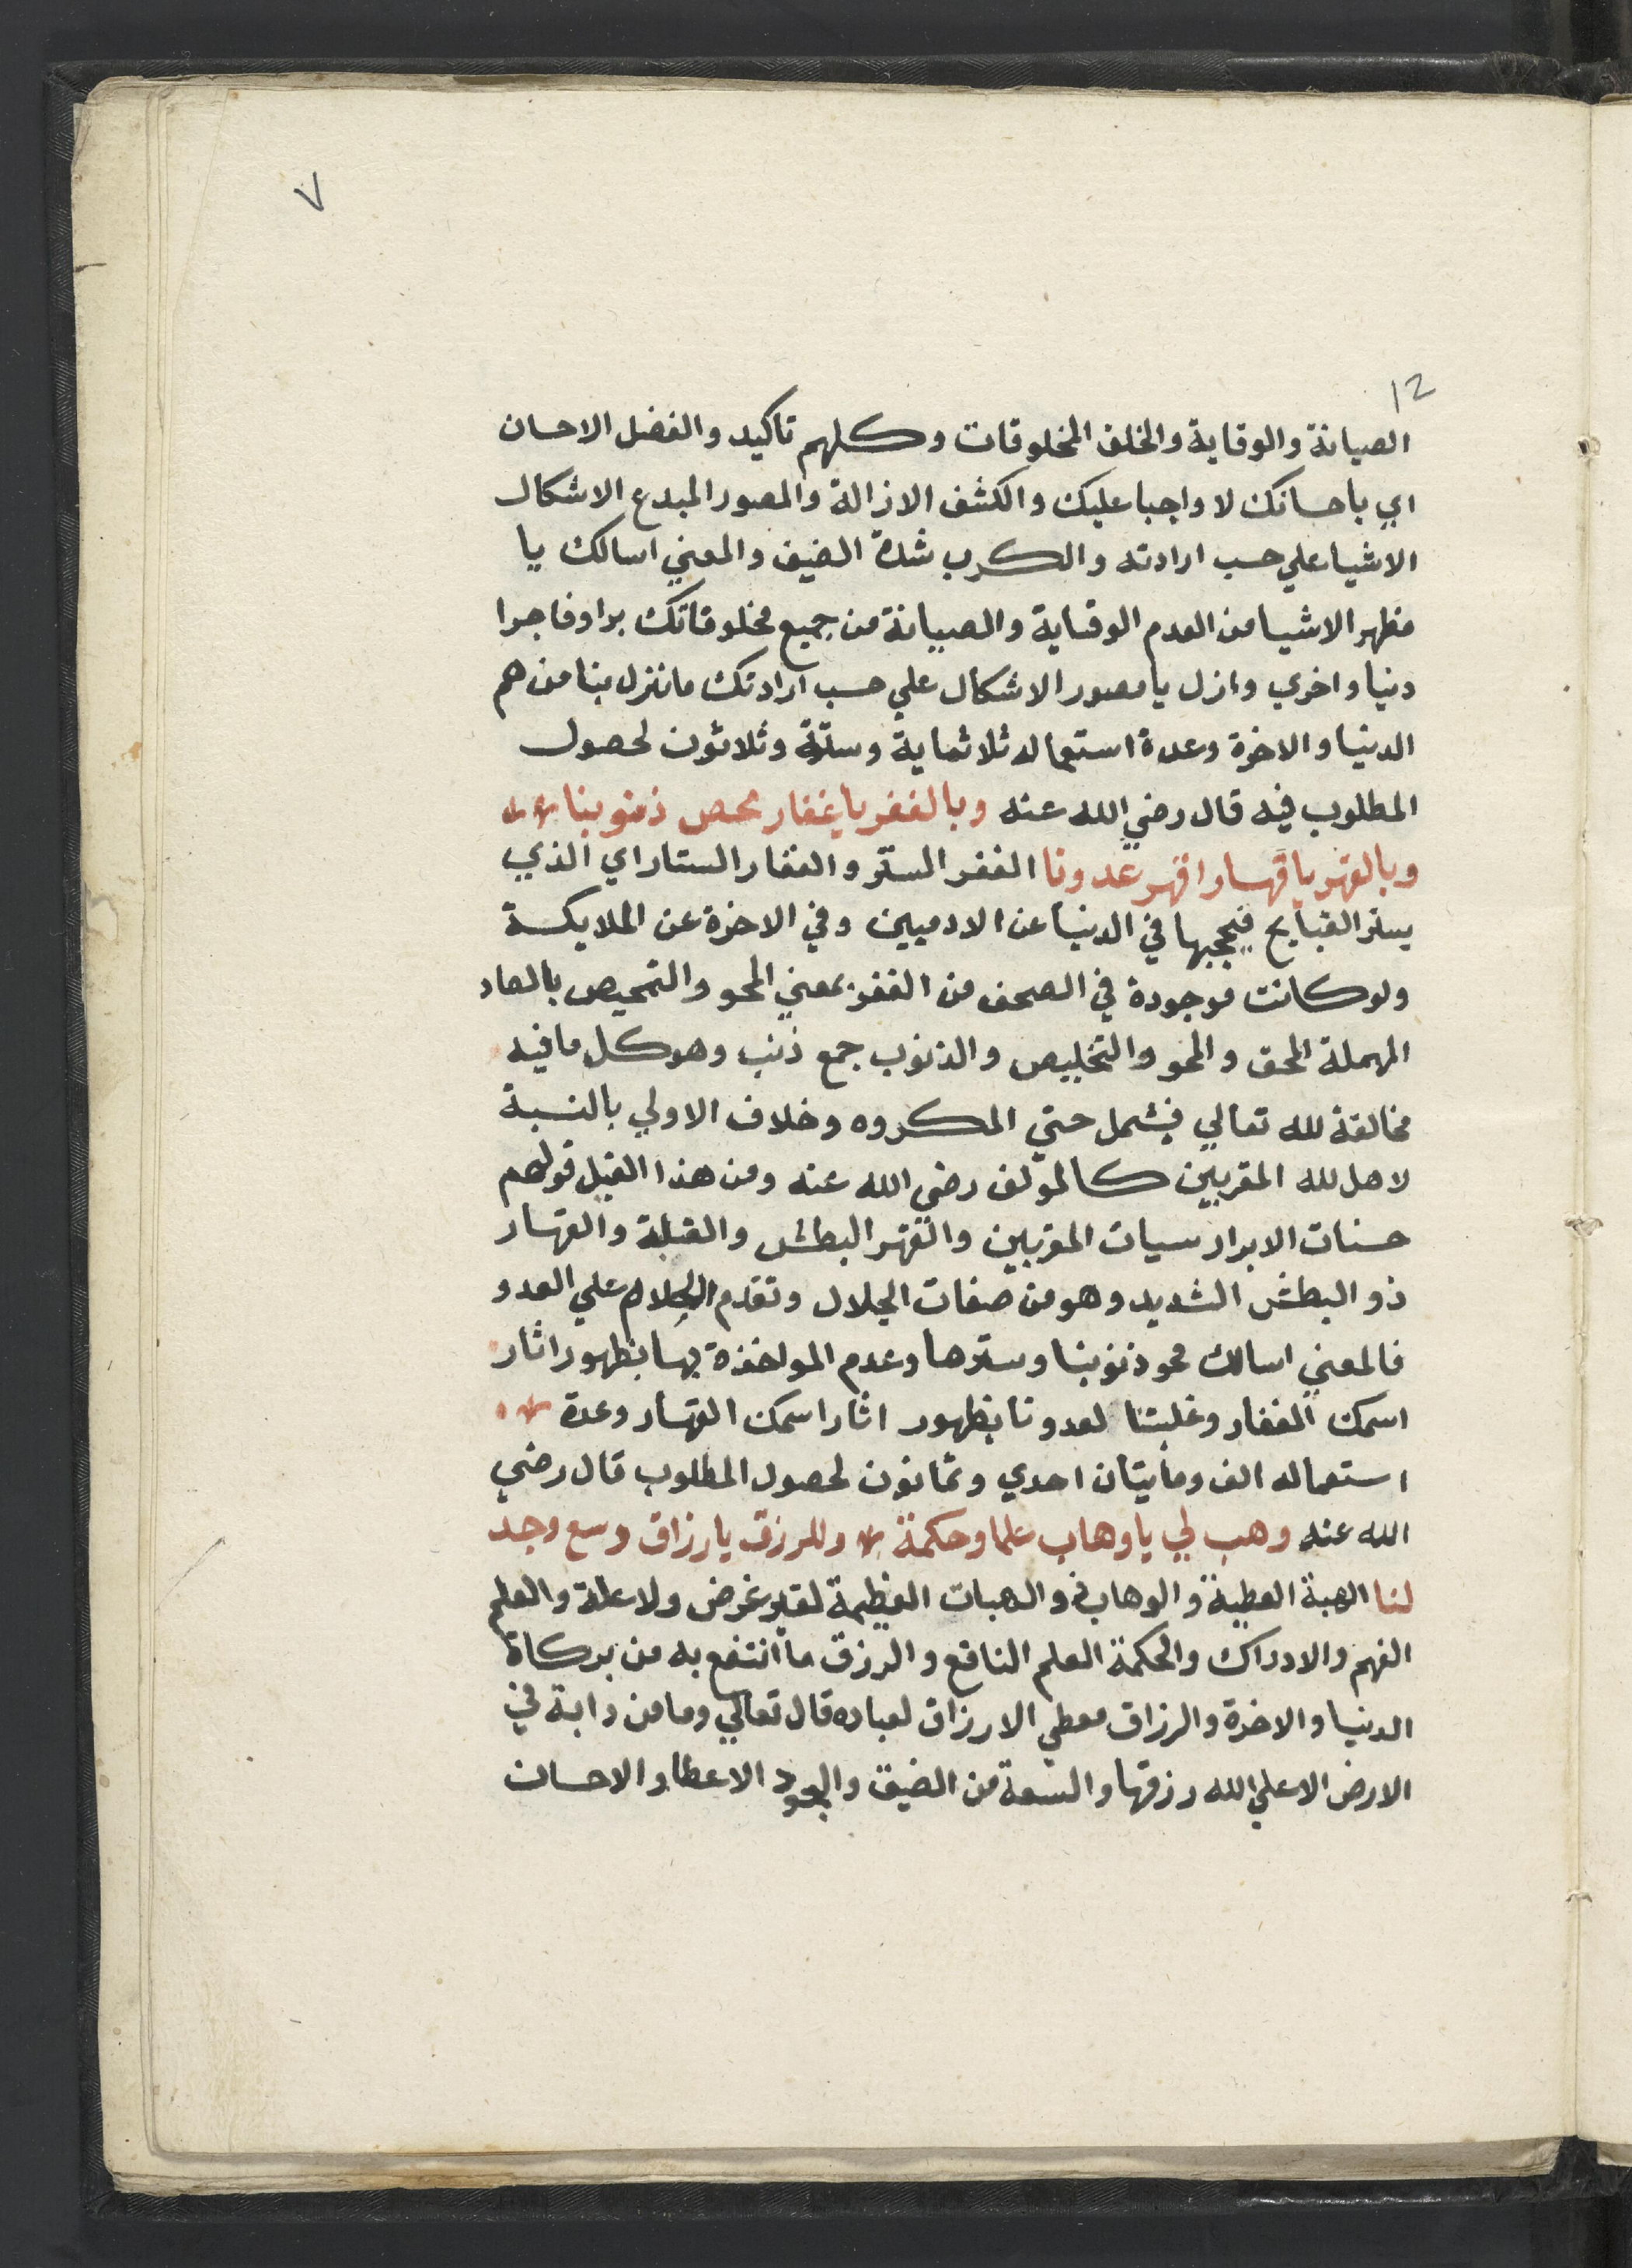 ٧
12
الصيانة والوقاية والخلق المخلوقات وكلهم تاكيد والفضل الاحسان
اي باحسانك لا واجبا عليك والكشف الازالة والمصور المبدع الاشكال
الاشيا علي حسب ارادته والكرب شدة الضيق والمعني اسالك يا
مظهر الاشيا من العدم الوقاية والصيانة من جميع مخلوقاتك برا وفاجرا
دنيا واخري وازل يا مصور الاشكال علي حسب ارادتك ما نزل بنا من هم
الدنيا والاخرة وعدة استعماله ثلاثماية وستة وثلاثون لحصول
المطلوب فيه قال رضي الله عنه وبالغفر يا غفار محص ذنوبنا
وبالقهر يا قهار اقهر عدونا الغفر الستر والغفار الستار اي الذي
يستر القبايح فيحجبها في الدنيا عن الادميين وفي الاخرة عن الملايكة
ولو كانت موجودة في الصحف من الغفر بمعني المحو والتمحيص بالصاد
المهملة المحق والمحو والتخليص والذنوب جمع ذنب وهو كل ما فيه
مخالفة لله تعالي فيشمل حتي المكروه وخلاف الاولي بالنسبة
لاهل لله المقربين كالمولف رضي الله عنه ومن هذا القبيل قولهم
حسنات الابرار سيات المقربين والقهر البطش والغلبة والقهار
ذو البطش الشديد وهو من صفات الجلال وتقدم الكلام علي العدو
فالمعني اسالك محو ذنوبنا وسترها وعدم المواخذة بها بظهور اثار
اسمك الغفار وغلبتنا لعدونا بظهور اثار اسمك القهار وعدة
استعماله الف ومايتان احدي وثمانون لحصول المطلوب قال رضي
الله عنه وهب لي يا وهاب علما وحكمة وللرزق يا رزاق وسع وجد
لنا الهبة العطية والوهاب ذو الهبات العظيمة لغير غرض ولا علة والعلم
الفهم والادراك والحكمة العلم النافع والرزق ما انتفع به من بركاة
الدنيا والاخرة والرزاق معطي الارزاق لعباده قال تعالي وما من دابة في
الارض الا علي الله رزقها والسعة من الضيق والجود الاعطا والاحسان